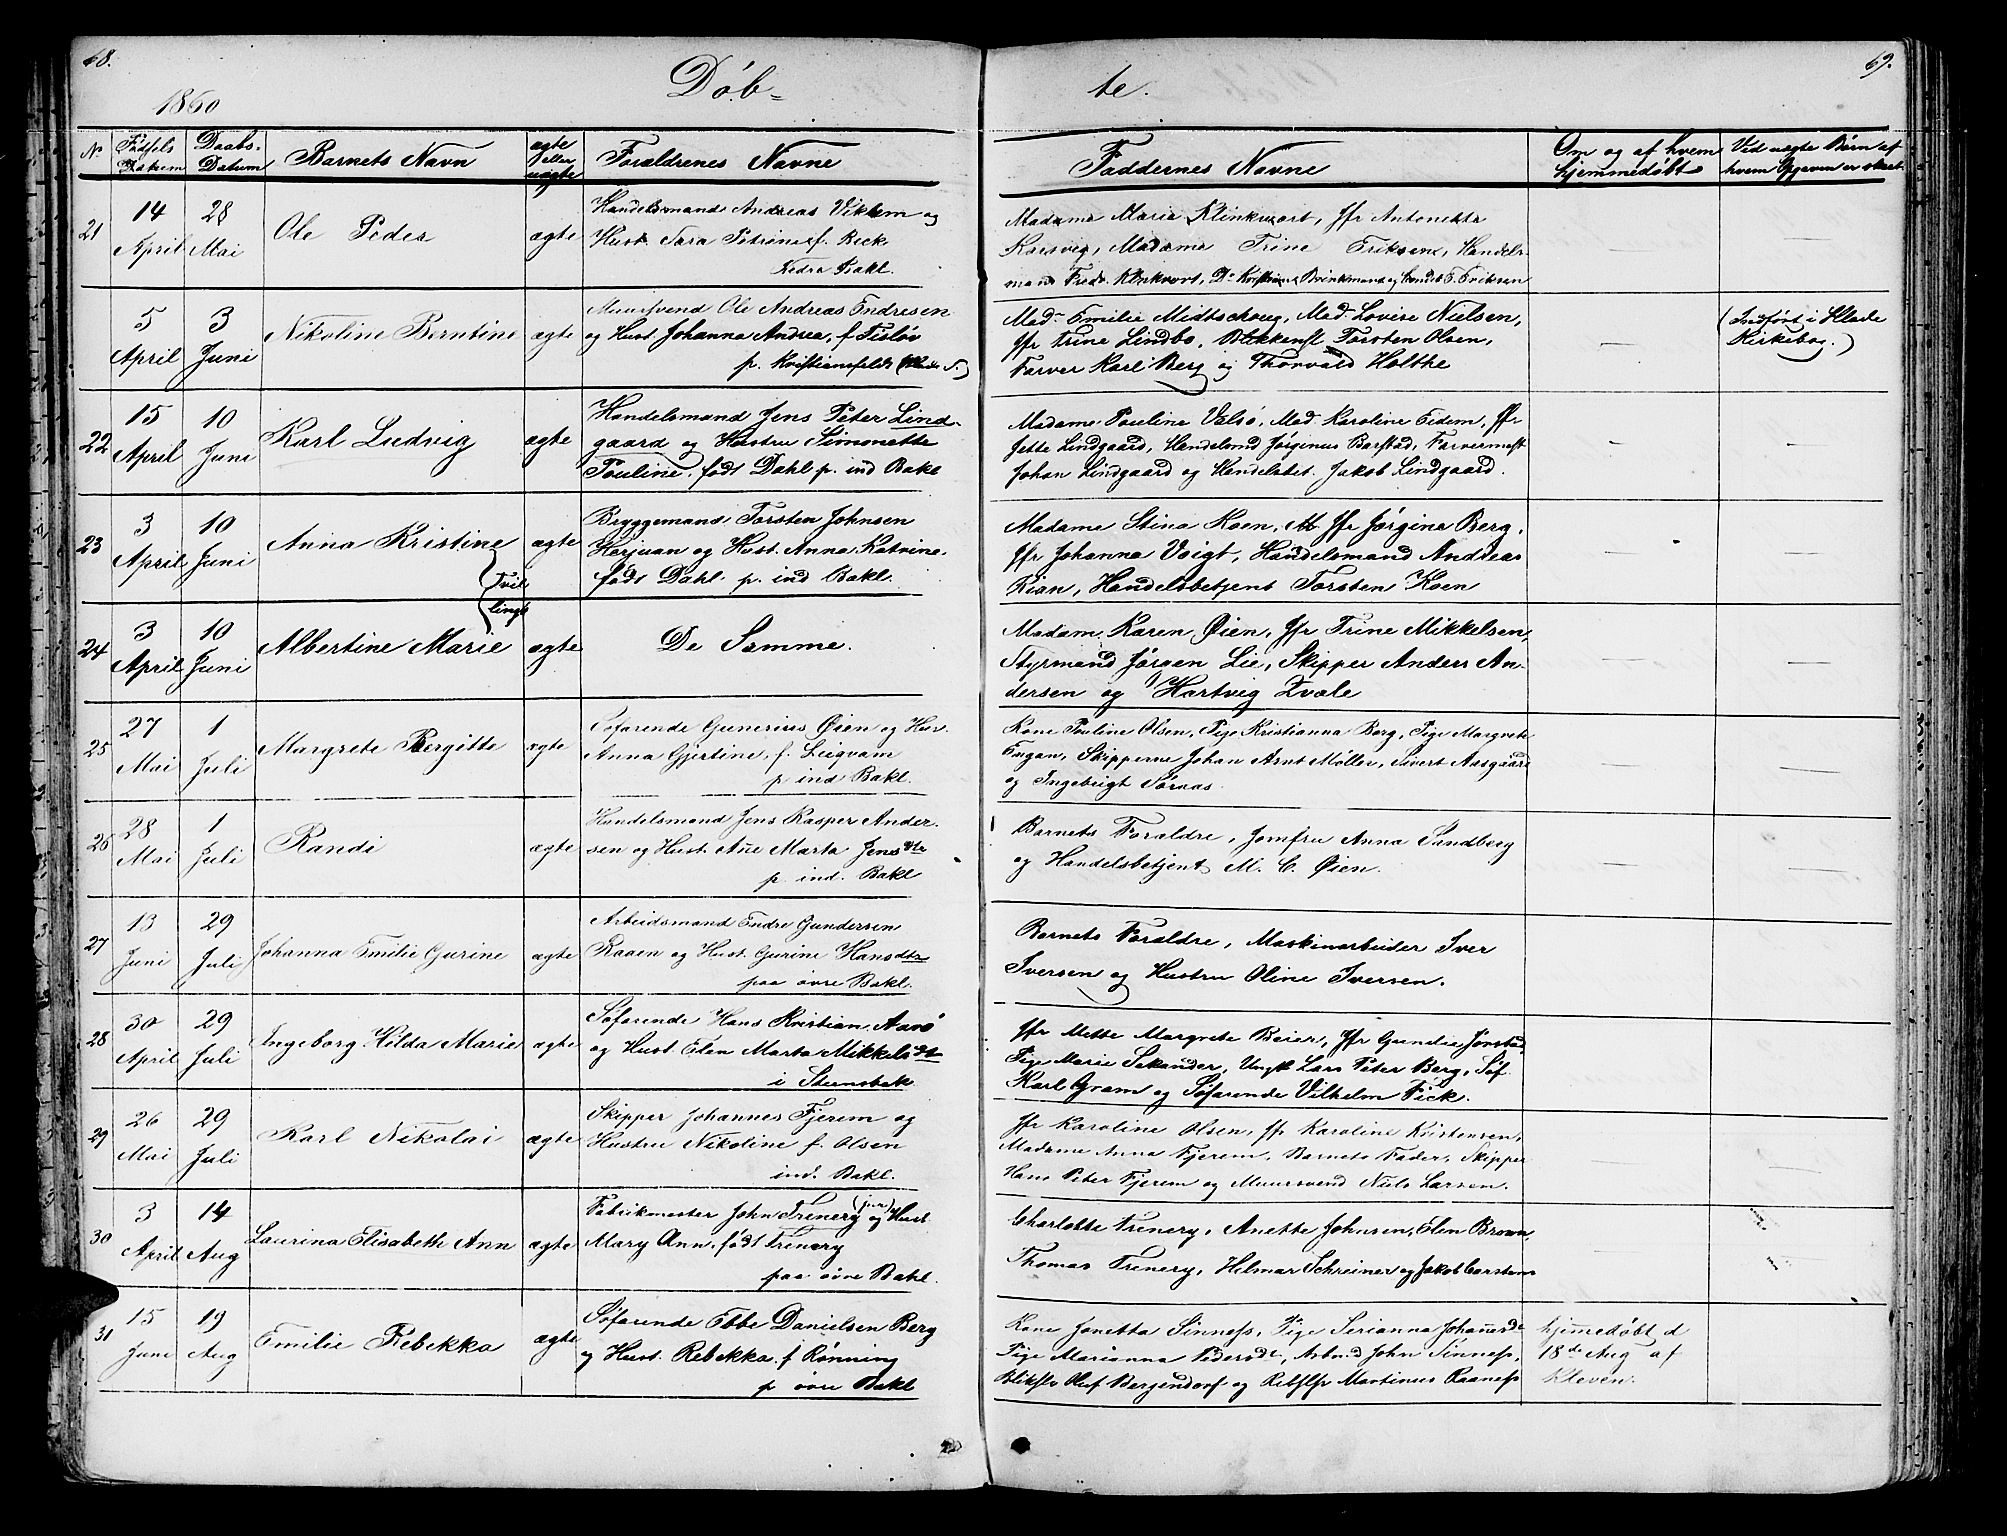 68.
69.
Døb-
te.
1860
No
Fødsels Datum
Daabs- Datum
Barnets Navn
ægte eller uægte
Forældrenes Navne
Faddernes Navne
Om og af hvem hjemmedøbt
Ved uægte Børn af hvem Opgaven er skeet
21
14 April
28 Mai
Ole Peder
ægte
Handelsmand Andreas Viklem og
Hust. Sara Petrine f. Beck
nedra Bakl.
Madame Maria Klinkvort, Jfr Antonette
Korsvig, Madame Trine Eriksen, Handels-
mand Fredr. Klinkvort, Do Kristian Brinkmand og Handlsb E. Eriksen
5 April
3 Juni
Nikoline Berntine
ægte
Muursvend Ole Andreas Endresen
og Hust. Johanna Andrea, f Fisløv
p. Kristiansfeldt
Mad. Emilie Midtschoug, Mad. Lovise Nielsen,
Jfr Trine Lindbo, Blikkensl Torsten Olsen,
Farver Karl Berg og Thorvald Holthe
(Indført i Hlade
Kirkebog.)
22
15 April
10 Juni
Karl Ludvig
ægte
Handelsmand Jens Peter Lind-
gaard og Hustru Simonette
Pouline, født Dahl p. ind Bakl
Madame Pauline Valsø, Mad. Karoline Eidem, Jfr
Jette Lindgaard, Handelsmd Jørginus Barstad, Farvermest
Johan Lindgaard og Handelsbet. Jakob Lindgaard.
23
3 April
10 Juni
Anna Kristine
(Tvil
ægte
Bryggemand Torsten Johnsen
Harjuan og Hust. Anna Katrine
født Dahl. p. ind Bakl.
Madame Stina Koen, Jfr Jørgine Berg,
Jfr Johanna Voigt, Handelsmand Andreas
Rian, Handelsbetjent Torsten Koen
24
3 April
10 Juni
Albertine Marie
linge
ægte
De Samme.
Madam Karen Øien, Jfr Trine Mikkelsen,
Styrmand Jørgen Lie, Skipper Anders An-
dersen og Hartvig Zvale
25
27 Mai
1 Juli
Margrete Bergitte
ægte
Søfarende Gunerius Øien og Hus.
Anna Gjertine, f. Liegvam
p ind Bakl.
Kone Pauline Olsen, Pige Kristianna Berg, Pige Margrete
Engan, Skipperne Johan Arnt Møller, Sivert Aasgaard
og Ingebrigt Søraas.
26
28 Mai
1 Juli
Randi
ægte
Handelsmand Jens Kasper Ander-
sen og Hust. Ane Marta Jensdtr
p. ind. Bakl
Barnets Foraldre, Jomfru Anna Sandberg
og Handelsbetjent M. C. Øien.
27
13 Juni
29 Juli
Johanna Emilie Gurine
ægte
Arbeidsmand Endre Gundersen
Raaen og Hust. Gurine Hansdtr
paa øvre Bakl.
Barnets Foraldre, Maskinarbeider Iver
Iversen og Hustru Oline Iversen.
28
30 April
29 Juli
Ingeborg Hilda Marie
ægte
Søfarende Hans Kristian Aarø
og Hust. Elen Marta Mikkelsdt
i Steensbak
Jfr Mette Margrete Beier, Jfr Gundia Jønstad,
Pige Marie Sakander, Ungk Lars Peter Berg, Søf.
Karl Gram og Søfarende Vilhelm Fick.
29
26 Mai
29 Juli
Karl Nikolai
ægte
Skipper Johannes Fjerem og
Hustru Nikoline f. Olsen
ind. Bakl.
Jfr Karoline Olsen, Jfr Karoline Kristensen,
Madame Anna Fjerem, Barnets Fader, Skipper
Hans Peter Fjerem og Muursvend Niels Larsen.
30
3 April
14 Aug
Laurina Elisabeth Ann
ægte
Fabrikmester John Trenery (jun) og Hust.
Mary Ann, født Trenery
paa øvre Bakl.
Charlotte Trenery, Anette Johnsen, Elen Brown,
Thomas Trenery, Hilmar Schreiner og Jakob Carstens
31
15 Juni
19 Aug
Emilie Rebekka
ægte
Søfarende Ebbe Danielsen Berg
og Hust. Rebekka, f Rønning
p øvre Bakl
Kone Jonetta Sinnes, Pige Serianna Johansdt
Pige Marianna Pedersdt, Arbmd John Sinnes,
Blikslr Oluf Bergendorf og Rebslr Martinus Raanes
hjemmedøbt d
18de Aug af
Kleven.